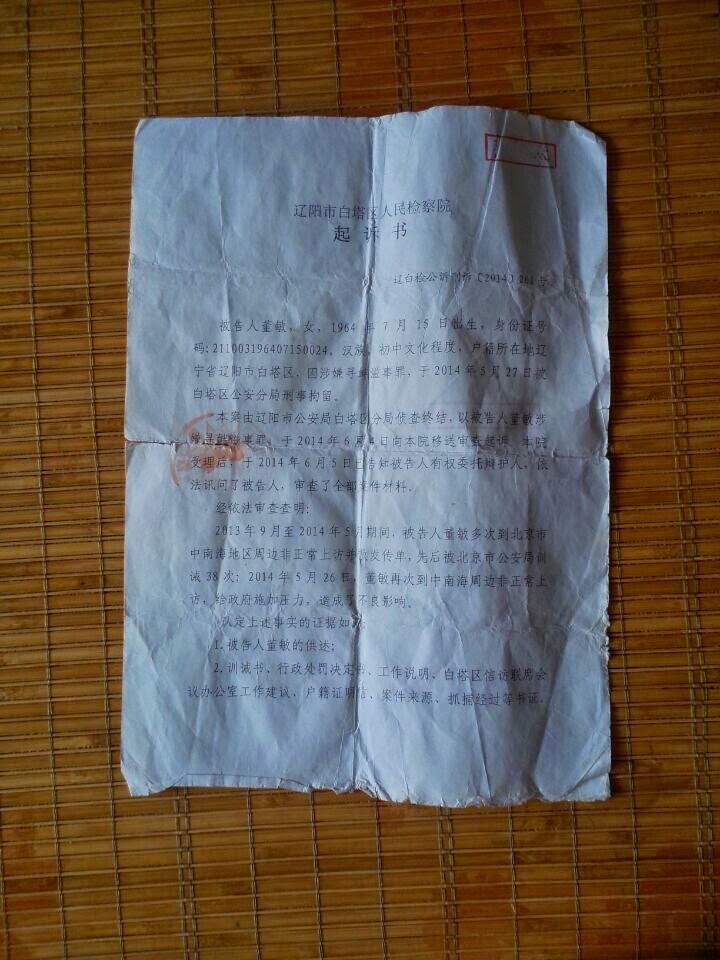 辽阳市白塔区人民检察院
起诉书
辽白检公诉刑诉〔2014〕261号
被告人董敏，女，1964年7月15日出生，身份证号
码:211003196407150024，汉族，初中文化程度，户籍所在地辽
宁省辽阳市白塔区，因涉嫌寻衅滋事罪，于2014年5月27日被
白塔区公安分局刑事拘留。
本案由辽阳市公安局白塔区分局侦查终结，以被告人董敏涉
嫌寻衅滋事罪，于2014年6月4日向本院移送审查起诉。本院
受理后，于2014年6月5日已告知被告人有权委托辩护人，依
法讯问了被告人，审查了全部案件材料。
经依法审查查明：
2013年9月至2014年5月期间，被告人董敏多次到北京市
中南海地区周边非正常上访并散发传单，先后被北京市公安局训
诫38次；2014年5月26日，董敏再次到中南海周边非正常上
访，给政府施加压力，造成了不良影响。
认定上述事实的证据如下：
1.被告人董敏的供述；
2.训诫书、行政处罚决定书、工作说明、白塔区信访联席会
议办公室工作建议、户籍证明信、案件来源、抓捕经过等书证。